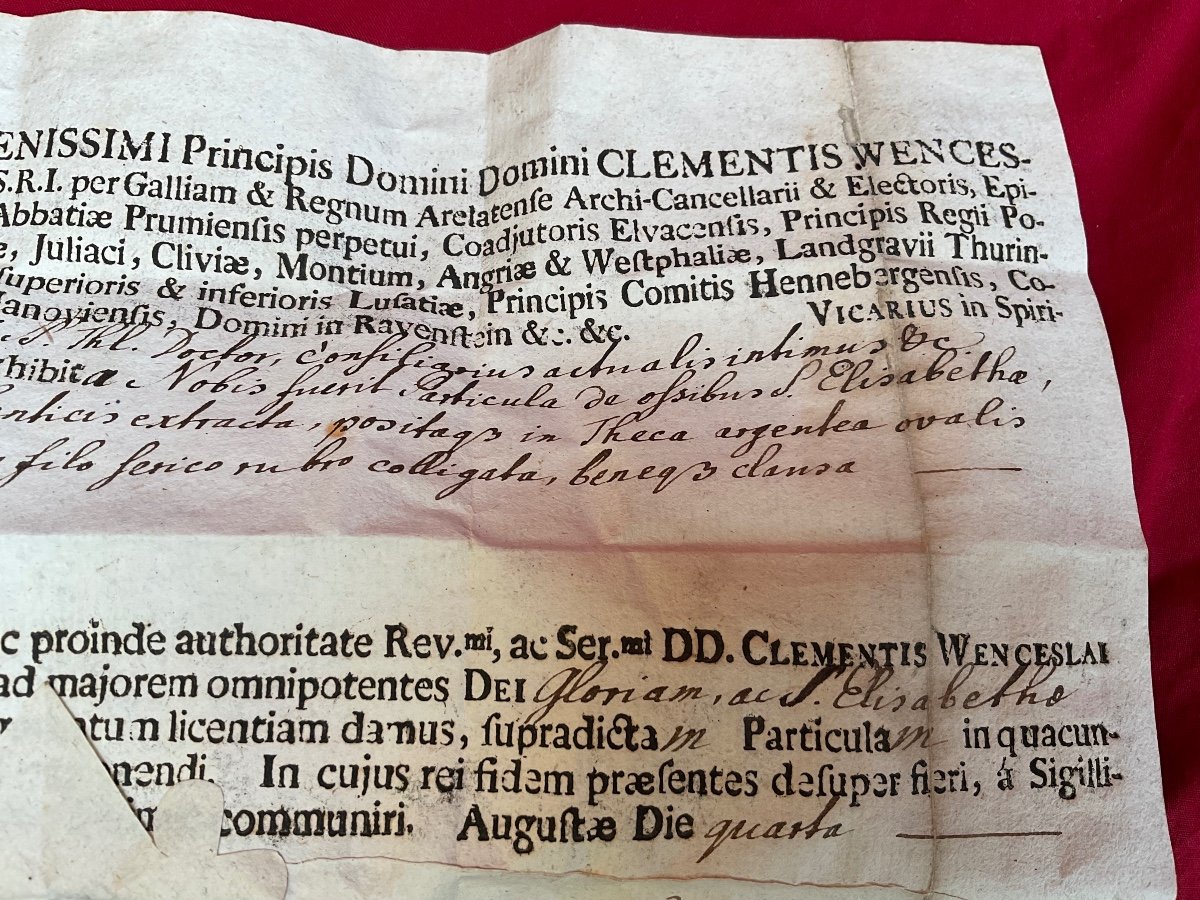 ENISSIMI Principis Domini Domini CLEMENTIS WENCES-
S.R.I. per Galliam & Regnum Arelatenſe Archi-Cancellarii & Electoris, Epi-
Abbatiæ Prumienſis perpetui, Coadjutoris Elvacenſis, Principis Regii Po-
æ, Juliaci, Cliviæ, Montium, Angriæ & Weſtphaliæ, Landgravii Thurin-
ſuperioris & inferioris Luſatiæ, Principis Comitis Hennebergenſis, Co-
anoviensis, Domini in Ravenſtein &c. &c.
VICARIUS in Spiri-
S. Thl. Doctor, Consiliarius actualis intimus &c
xhibita Nobis fuerit Particula de ossibus S. Elisabethæ,
enticis extracta, positaqȝ in Theca argentea ovalis
filo serico rubro colligata, beneqȝ clausa
c proinde authoritate Rev.mi, ac Ser.mi DD. CLEMENTIS WENCESLAI
ad majorem omnipotentes DEI Gloriam, ac S. Elisabethæ
tum licentiam damus, ſupradictam Particulam in quacun-
nendi. In cujus rei fidem præſentes deſuper fieri, á Sigilli-
communiri. Auguſtæ Die quarta